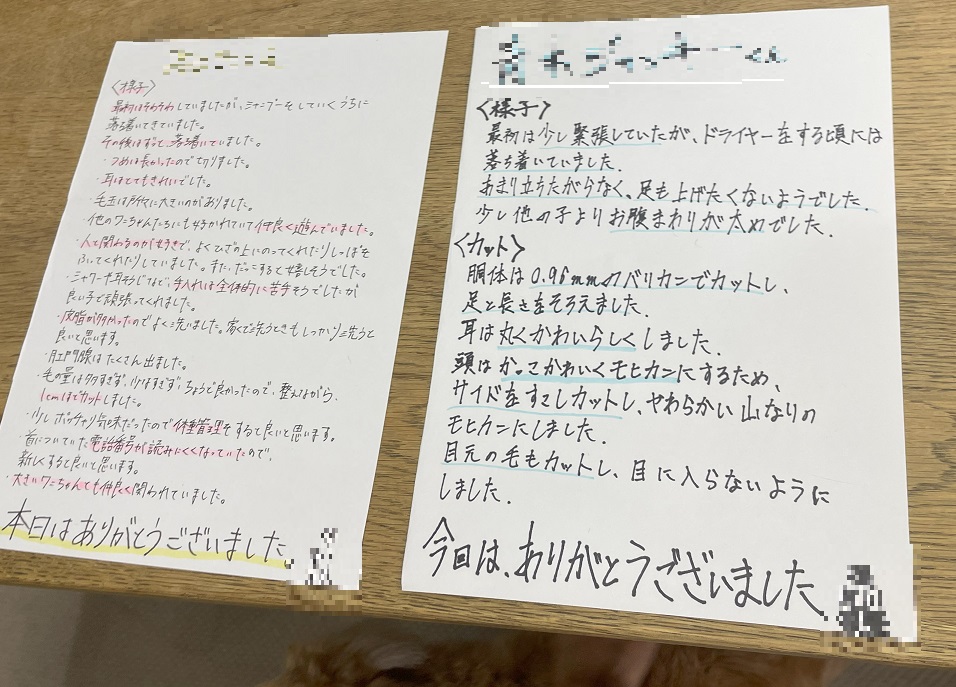 〈様子〉
最初はそわそわしていましたが、シャンプーをしていくうちに
落ち着いてきました。
その後はずっと落ち着いていました。
・つめは長かったので切りました。
・耳はとてもきれいでした。
・毛玉は所々に大きいのがありました。
・他のワンちゃんたちにも好かれていて仲良く遊んでいました。
・人と関わるのが好きで、よくひざの上にのってくれたりしっぽを
ふってくれたりしていました。また、だっこすると嬉しそうでした。
・シャワーや耳そうじなど、手入れは全体的に苦手そうでしたが
良い子で頑張ってくれました。
・皮脂が多かったのでよく洗いました。家で洗うときもしっかり洗うと
良いと思います。
・肛門腺はたくさん出ました。
・毛の量は多すぎず、少なすぎず、ちょうど良かったので、整えながら、
1cmほどカットしました。
・少しポッチャリ気味だったので体重管理をすると良いと思います。
首についていた電話番号が読みにくくなっていたので、
新しくすると良いと思います。
・大きいワンちゃんとも仲良く関われていました。
本日はありがとうございました。
〈様子〉
最初は少し緊張していたが、ドライヤーをする頃には
落ち着いていました.
あまり立ちたがらなく、足も上げたくないようでした.
少し他の子よりお腹まわりが太めでした.
〈カット〉
胴体は0.96mmのバリカンでカットし、
足と長さをそろえました.
耳は丸くかわいらしくしました.
頭はかっこかわいくモヒカンにするため、
サイドをすこしカットし、やわらかい山なりの
モヒカンにしました.
目元の毛もカットし、目に入らないように
しました.
今回は、ありがとうございました.